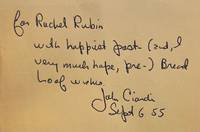 for Rachel Rubin
with happiest past (and, I
very much hope, pre-) Bread
Loaf wishes.
John Ciardi
Sept 6 55